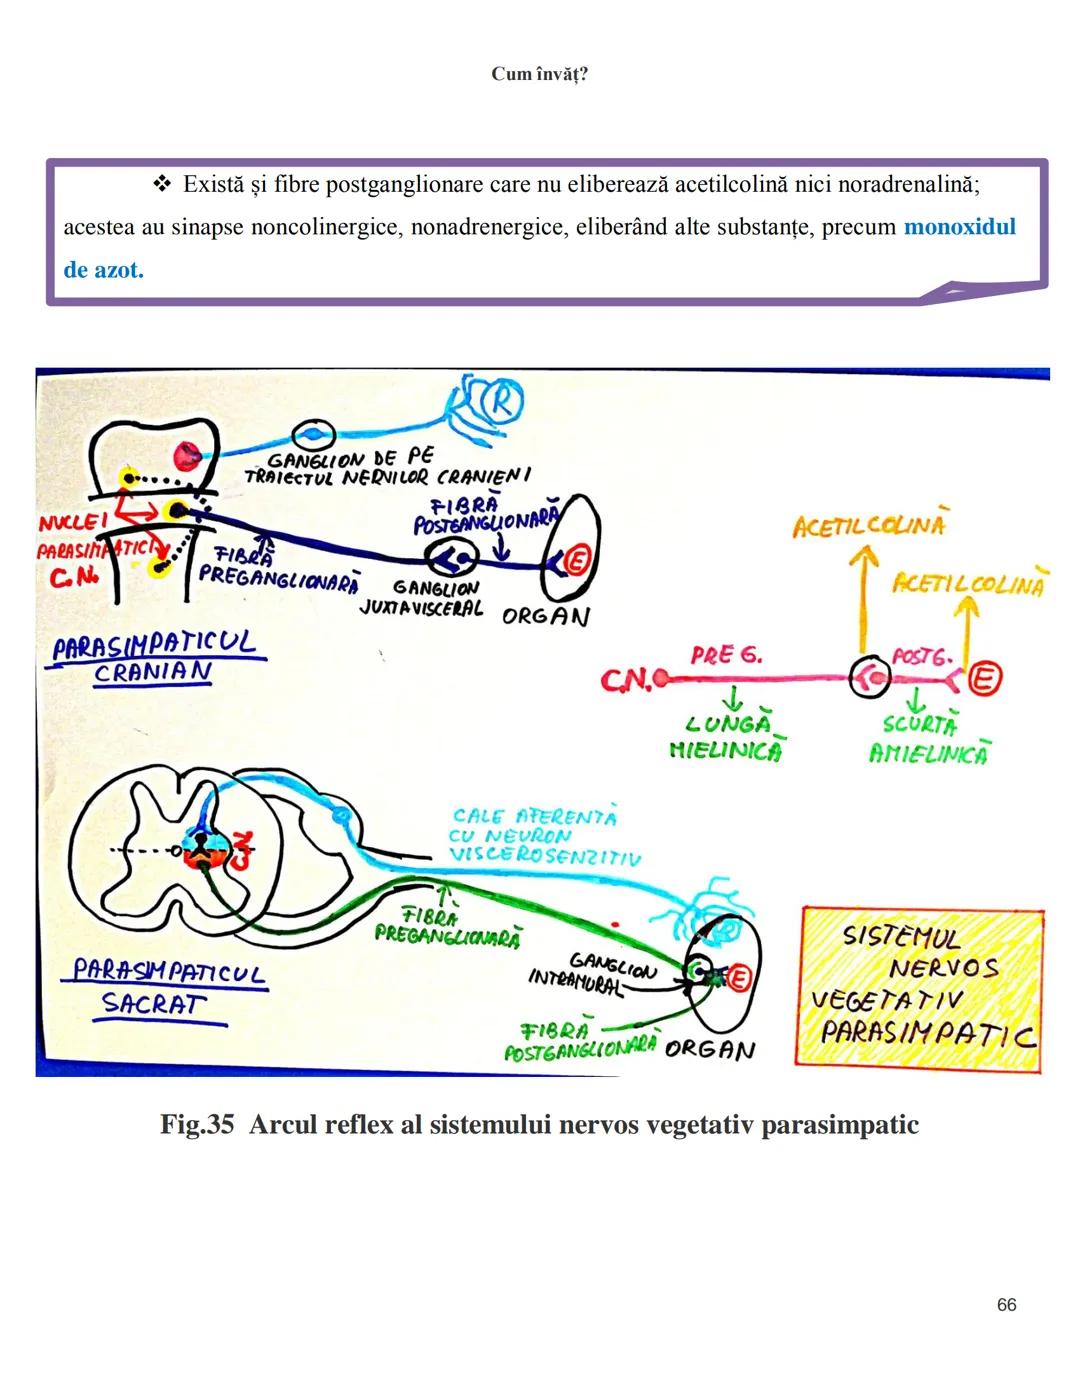 Cum învăț?
❖ Există și fibre postganglionare care nu eliberează acetilcolină nici noradrenalină;
acestea au sinapse noncolinergice, nonadrenergice, eliberând alte substanțe, precum monoxidul
de azot.
R
GANGLION DE PE
TRAIECTUL NERVILOR CRANIENI
NUCLEI
PARASIMPATICI
C.N.
FIBRĂ
PREGANGLIONARĂ
FIBRĂ
POSTGANGLIONARĂ
E
GANGLION
JUXTAVISCERAL
ORGAN
PARASIMPATICUL
CRANIAN
ACETILCOLINĂ
ACETILCOLINĂ
C.N.
PRE G.
POST G.
E
LUNGĂ
MIELINICĂ
SCURTĂ
AMIELINICĂ
C.N.
CALE AFERENTĂ
CU NEURON
VISCEROSENZITIV
FIBRĂ
PREGANGLIONARĂ
R
GANGLION
INTRAMURAL
E
FIBRĂ
POSTGANGLIONARĂ
ORGAN
PARASIMPATICUL
SACRAT
SISTEMUL
NERVOS
VEGETATIV
PARASIMPATIC
Fig.35 Arcul reflex al sistemului nervos vegetativ parasimpatic
66